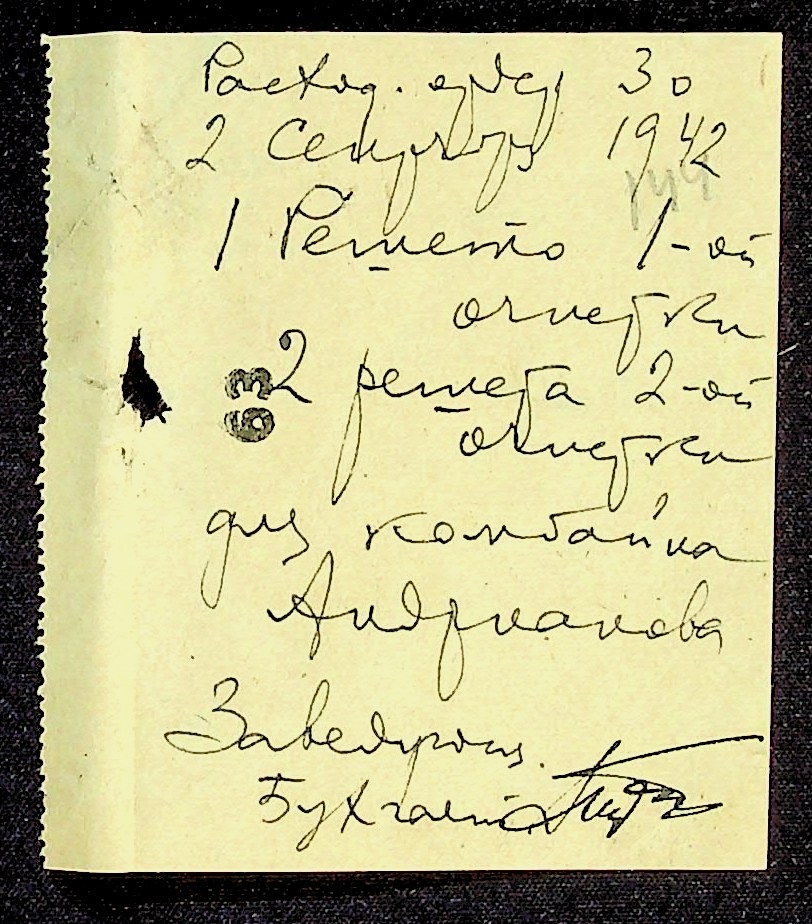 Расход. ордер 30
2 Сентября 1942
144
1 Решето 1-ой
очистки
63
2 решета 2-ой
очистки
для комбайна
Андрианова
Заведующ.
Бухгалт